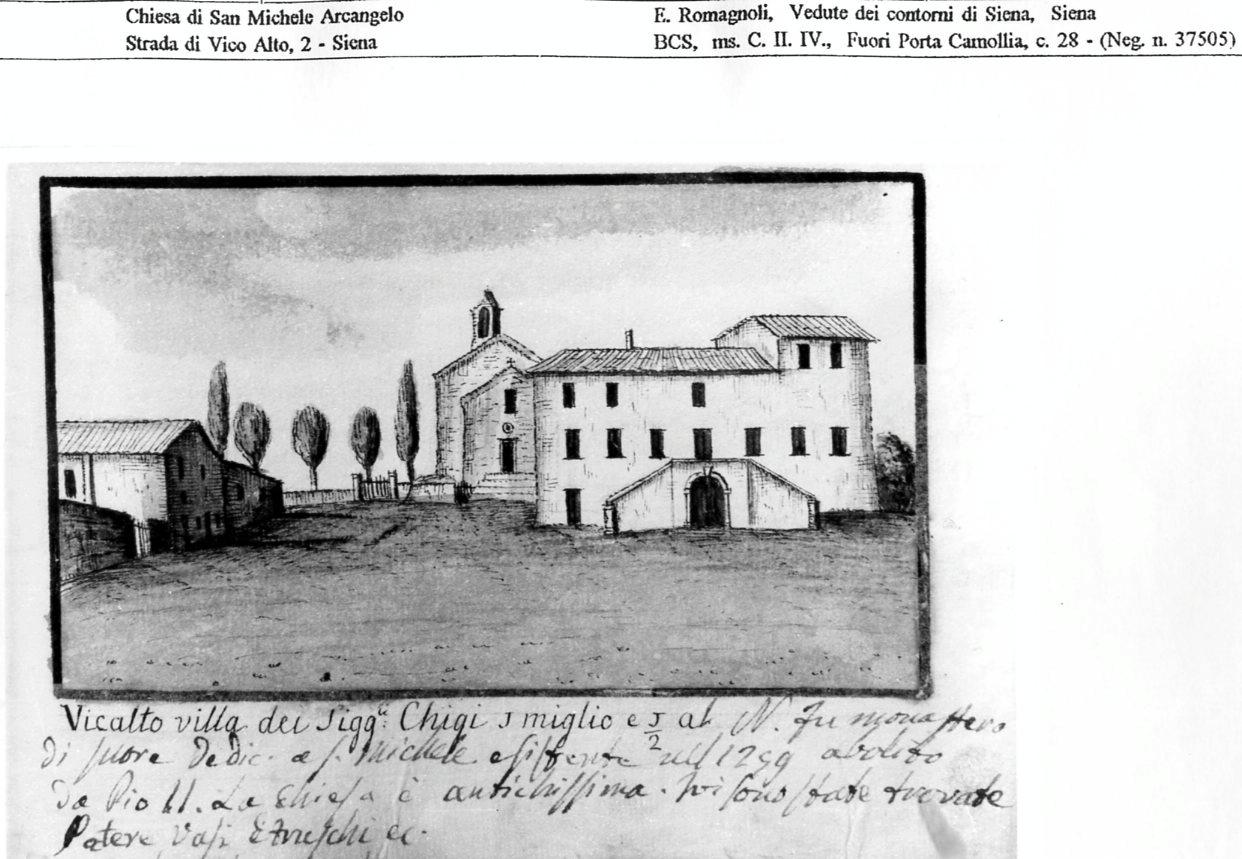 Chiesa di San Michele Arcangelo
Strada di Vico Alto, 2 - Siena
E. Romagnoli, Vedute dei contorni di Siena, Siena
BCS, ms. C. II. IV., Fuori Porta Camollia, c. 28 - (Neg. n. 37505)
Vicalto villa dei Sigg.ri Chigi 1 miglio e 1/2 al N. fu monastero
di suore Dedic. a S. Michele esistente nell 1259 abolito
Da Pio II. La Chiesa è antichissima. Ivi sono state trovate
Patere Vasi Etruschi ec.